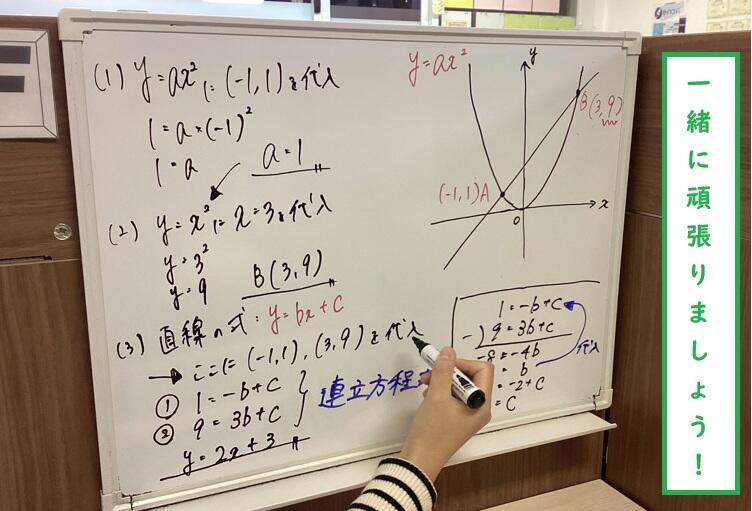 (1) y=ax²に(-1,1)を代入
1=a×(-1)²
1=a
a=1
(2) y=x²にx=3を代入
y=3²
y=9
B(3,9)
(3) 直線の式:y=bx+c
→ ここに(-1,1),(3,9)を代入
① 1=-b+c
② 9=3b+c
連立方程式
y=2x+3
y=ax²
y
B(3,9)
(-1,1)A
x
0
1=-b+c
-)9=3b+c
-8=-4b
=b
代入
=-2+c
=c
一緒に頑張りましょう!